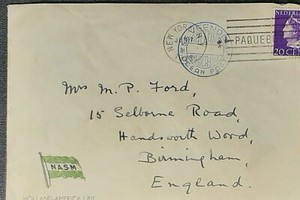 NEW YORK
OCEAN POST
PAQUEB
NEDERL
20 CE
Mrs M. P. Ford,
15 Selborne Road,
Handsworth Wood,
Birmingham,
England.
NASM
HOLLAND-AMERICA LINE